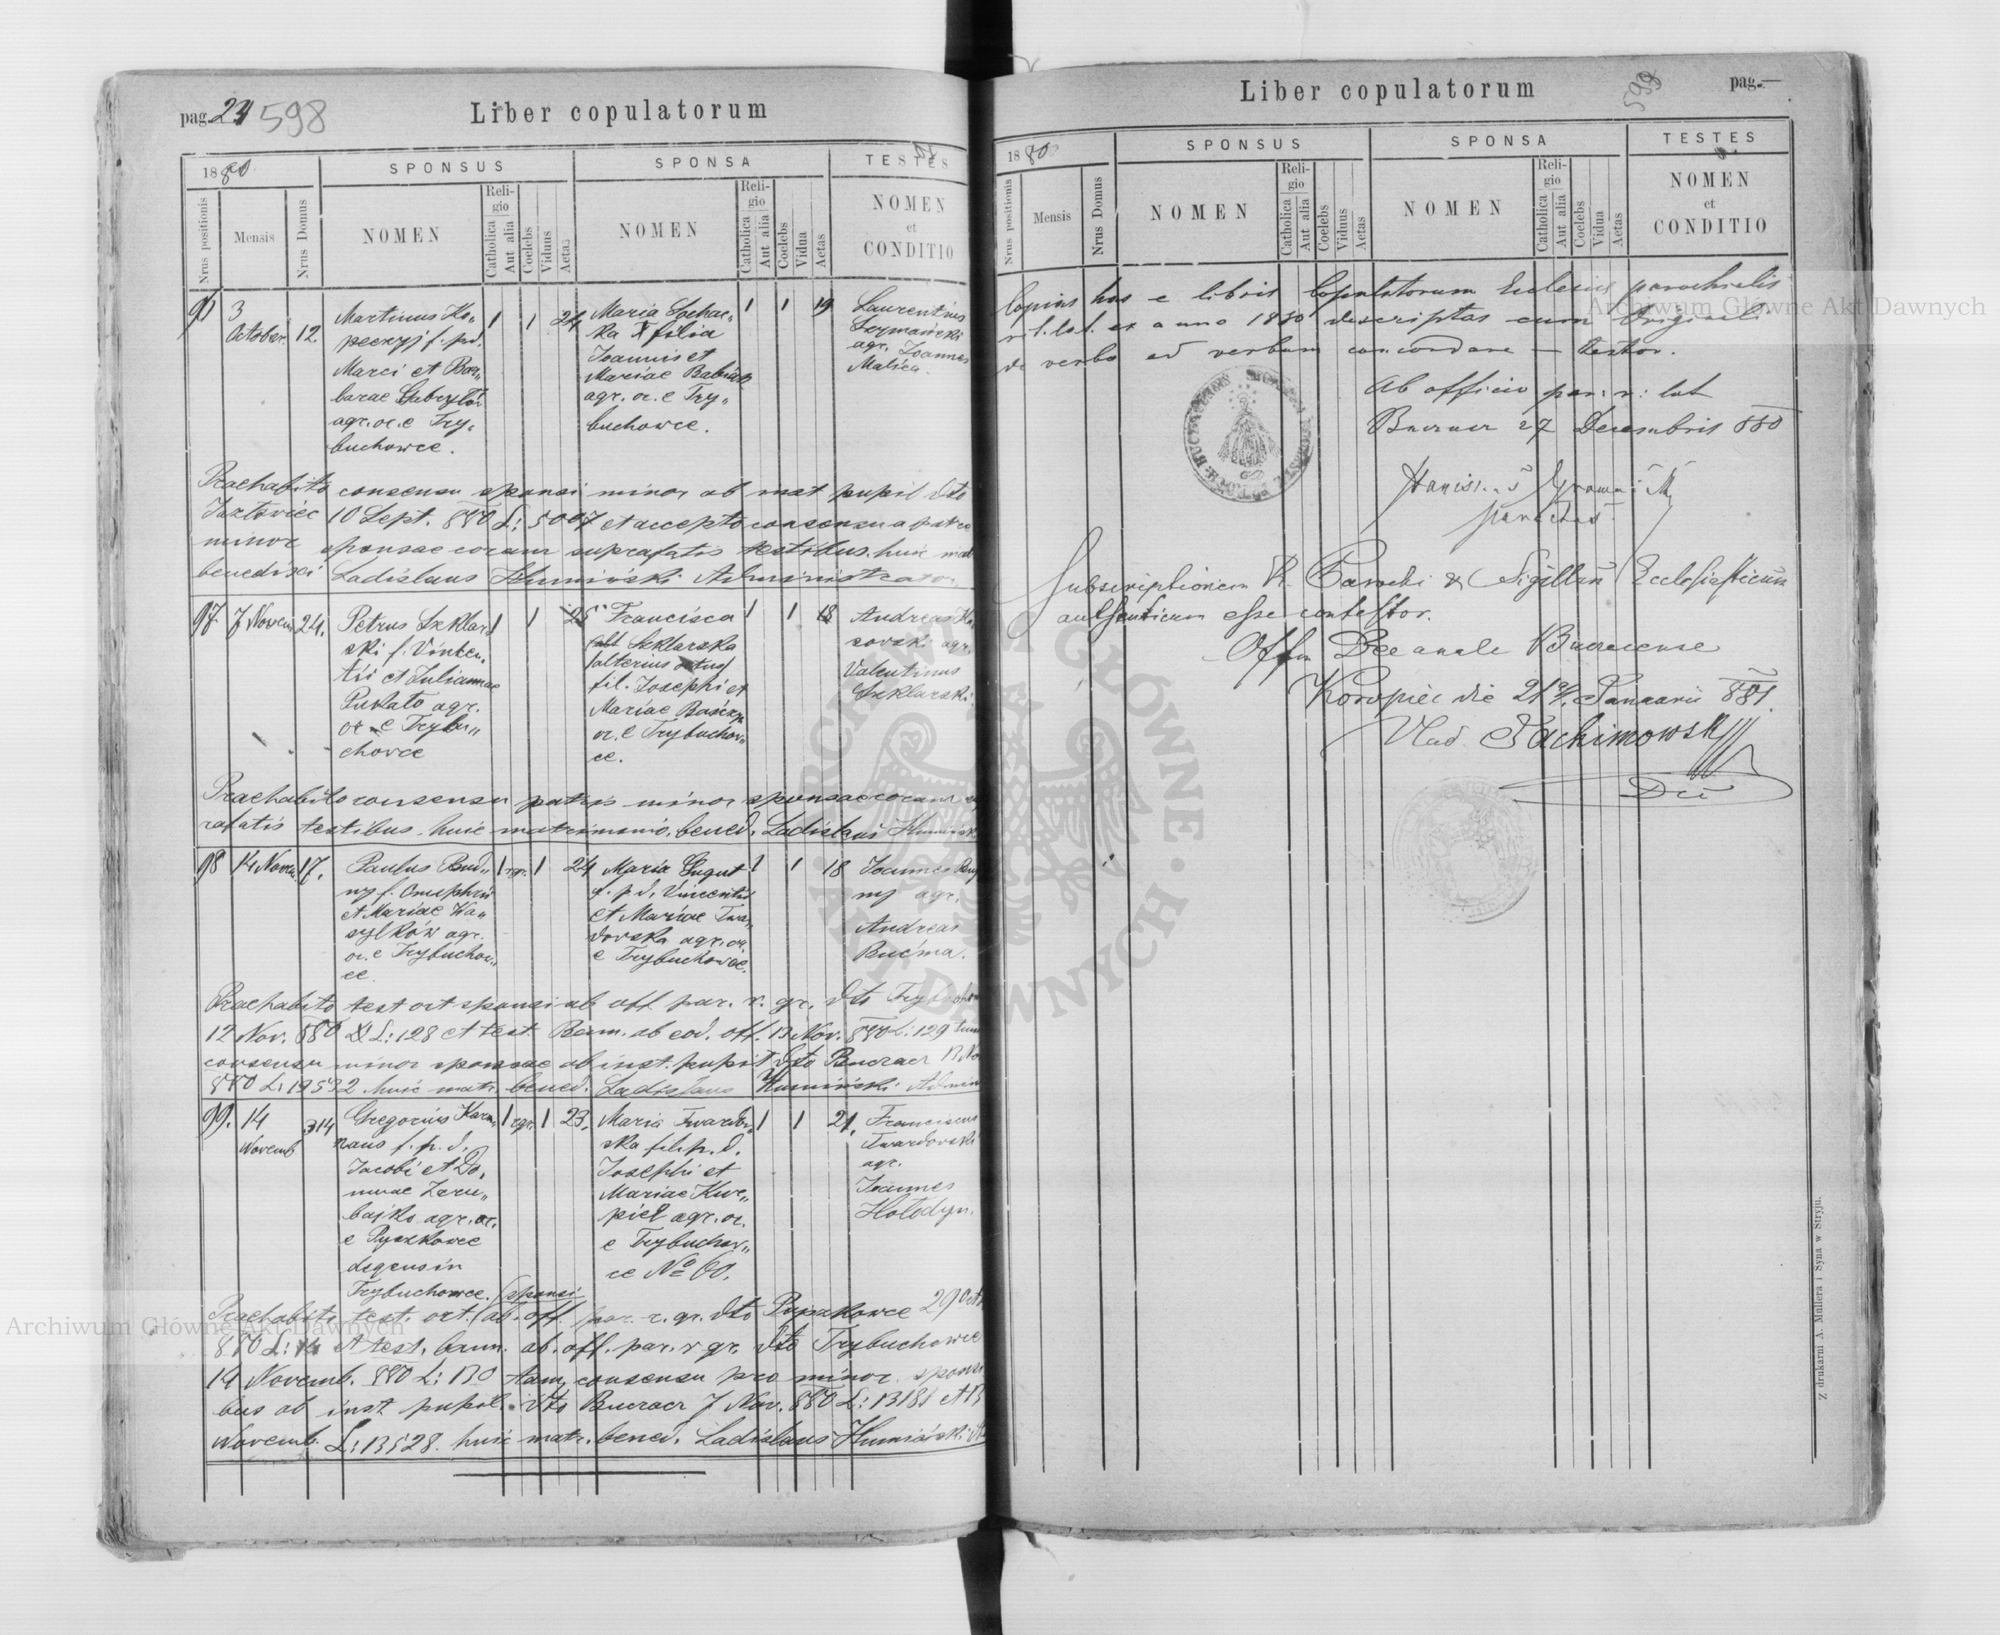 pag. 24 598
Liber copulatorum
1880
SPONSUS
SPONSA
TESTES
Nrus positionis
Mensis
Nrus Domus
NOMEN
Religio
Catholica
Aut alia
Coelebs
Viduus
Aetas
NOMEN
Religio
Catholica
Aut alia
Coelebs
Vidua
Aetas
NOMEN
et
CONDITIO
3
October.
12.
Martinus Ko„
peczyj f. p. d.
Marci et Bar„
barae
agr. or. e Try„
buchowce.
1
1
24
Maria
ka filia
Joannis et
Mariae Babiak
agr. or. e Try„
buchowce.
1
1
19
Laurentius
Szymański
agr. Joannes
Malica.
Praehabito consensu sponsi minor ab inst pupil dto
Jazłowiec 10 Sept. 880 L: 5007 et accepto consensu a patre
minor sponsae coram suprafatis testibus huic mat
benedixi Ladislaus Humiński Administrator
97.
7 Novem
24.
Petrus Szklar
ski f. Vincen„
tii et Juliannae
Pukato agr.
or. e Trybu„
chowce
1
1
25
Francisca
Szklarska
fil. Josephi et
Mariae
or. e Trybuchow„
ce.
1
1
18
Andreas Ko
sovski agr.
Valentinus
Szklarski.
Praehabito consensu patris minor sponsae coram sup
rafatis testibus huic matrimonio bened. Ladislaus Humiński
98
14 Novem.
17.
Paulus Bud„
nyj f. Onuphrii
et Mariae Wa„
sylków agr.
or. e Trybuchow„
ce
1 rgr.
1
24
Maria Gugut
f. p. d. Vincentii
et Mariae Twar„
dovska agr. or.
e Trybuchowce.
1
1
18
Joannes
agr.
Andreas
Bućma.
Praehabito test ort sponsi ab off par. r. gr. dto
12 Nov. 880 L: 128 et test. Bann. ab eod. off. 13 Nov. 880 L: 129
consensu minor sponsae ab inst. pupil dto Buczacz
880 L: 19532 huic matr. bened. Ladislaus Humiński Admin
99.
14
Novemb
314
Gregorius
f. p. d.
Jacobi et Do„
mnae Zaru„
bajko agr. or.
e Pyszkowce
degens in
Trybuchowce.
1 rgr.
1
23.
Maria Twardov„
ska fil. p. d.
Josephi et
Mariae Kwe„
pież agr. or.
e Trybuchow„
ce No 60.
1
1
21.
Franciscus
Twardovski
agr.
Joannes
Hołodyn.
Praehabito test. ort. sponsi ab off. par. r. gr. dto Pyszkowce 29 Oct
880 L: et test. bann. ab. off. par. r gr. dto Trybuchowce
14 Novemb. 880 L: 130 tam consensu pro minor. sponsi
bus ab inst pupil. dto Buczacz 7 Nov. 880 L: 13181 et 13
Novemb. L: 13528. huic matr. bened. Ladislaus Humiński
Liber copulatorum
599
pag. —
1880
SPONSUS
SPONSA
TESTES
Nrus positionis
Mensis
Nrus Domus
NOMEN
Religio
Catholica
Aut alia
Coelebs
Viduus
Aetas
NOMEN
Religio
Catholica
Aut alia
Coelebs
Vidua
Aetas
NOMEN
et
CONDITIO
Copias has e libris Copulatorum Eclesiae parochialis
rit. lat. ex anno 1880 descriptas cum Originali
de verbo ad verbum concordare — testor.
Ab officio par: r: lat
Buczacz 27 Decembris 880
parochus
Subscriptionem R. Parochi & Sigillum Ecclesiasticum
authenticum esse contestor.
Off Decanale Buczacense
Koropiec die 21 Januarii 881.
Vlad. Jachimowski
Dec
Z drukarni A. Müllera i Syna w Stryju.
Archiwum Główne Akt Dawnych
Archiwum Główne Akt Dawnych
ARCHIWUM GŁÓWNE AKT DAWNYCH